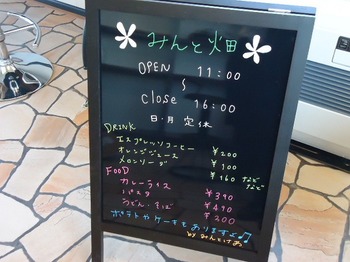 みんと畑
OPEN 11:00
~
close 16:00
日・月 定休
DRINK
エスプレッソコーヒー ¥200
オレンジジュース ¥100
メロンソーダ ¥160 などなど
FOOD
カレーライス ¥390
パスタ ¥490
うどん・そば ¥200
ポテトやケーキもありますよ♫
by みんとはあ